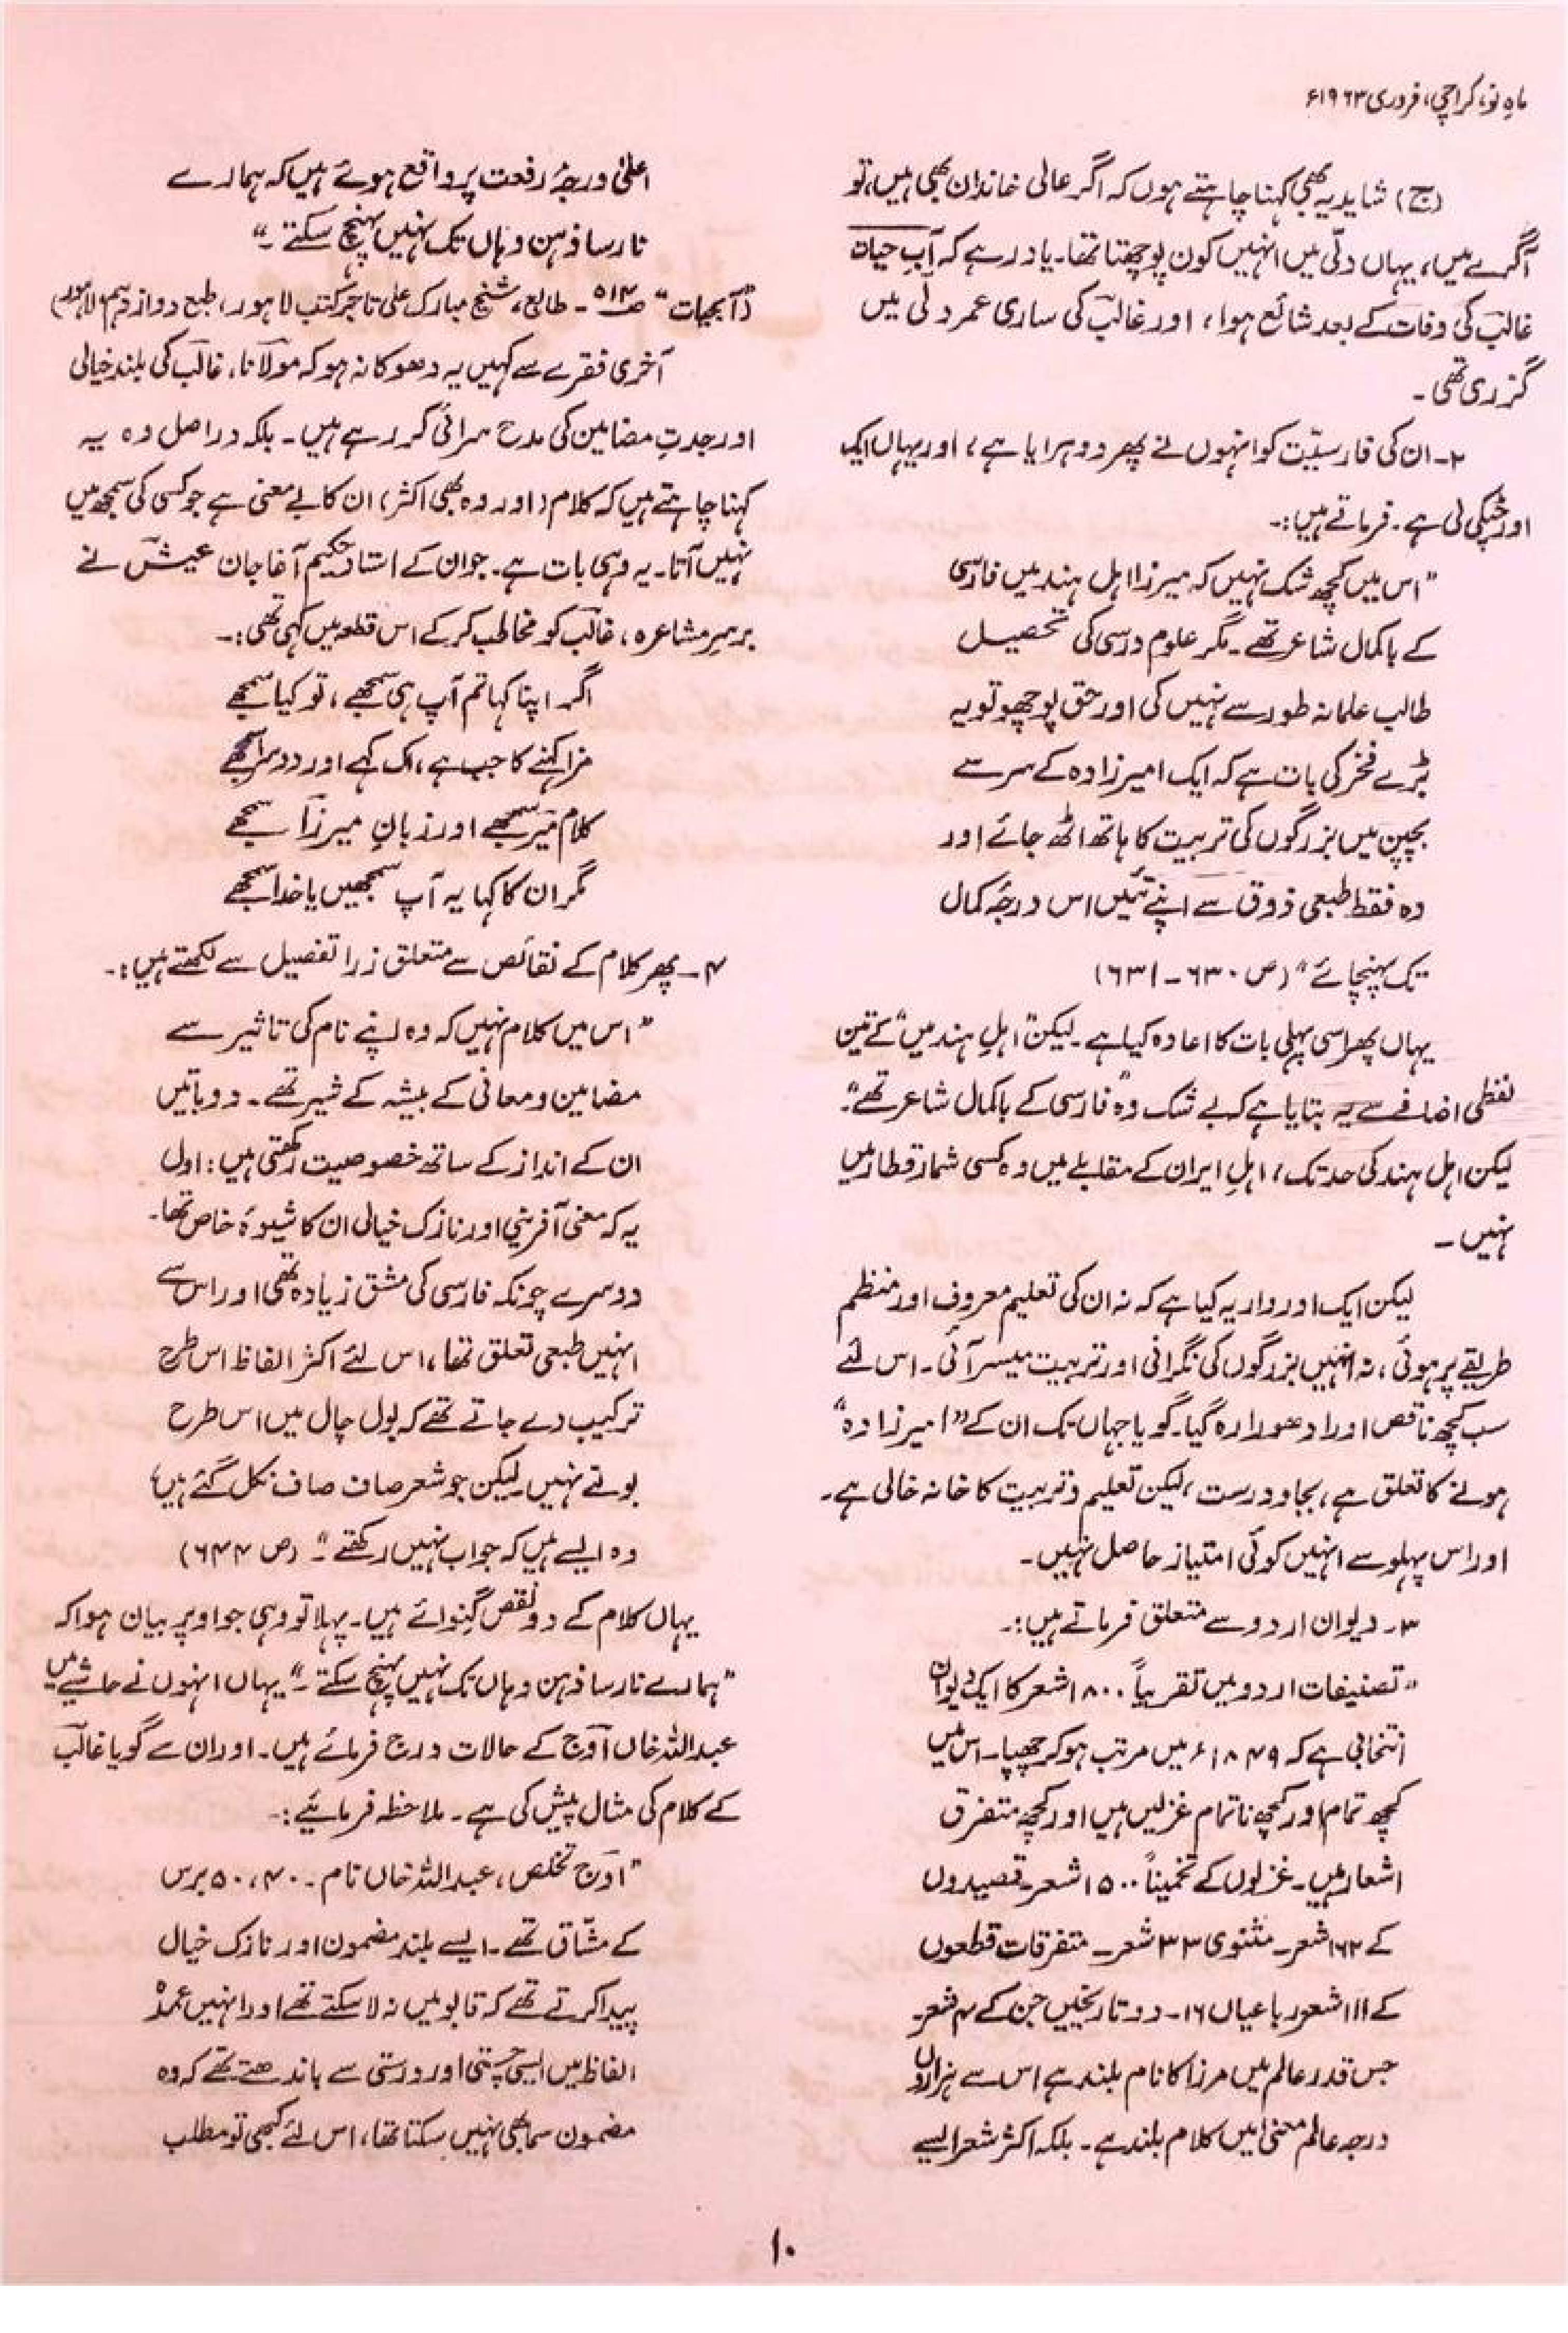 ماہِ نو، کراچی، فروری ۱۹۶۳ء
(ج) شاید یہ بھی کہنا چاہتے ہوں کہ اگر عالی خاندان بھی ہیں، تو
آگرے میں، یہاں دلّی میں انہیں کون پوچھتا تھا۔ یاد رہے کہ آبِ حیات
غالبؔ کی وفات کے بعد شائع ہوا، اور غالبؔ کی ساری عمر دلّی میں
گزری تھی۔
۲۔ ان کی فارسیّت کو انہوں نے پھر دوہرایا ہے، اور یہاں ایک
اور چٹکی لی ہے۔ فرماتے ہیں:۔
"اس میں کچھ شک نہیں کہ میرزا اہل ہند میں فارسی
کے باکمال شاعر تھے۔ مگر علوم درسی کی تحصیل
طالب علمانہ طور سے نہیں کی اور حق پوچھو تو یہ
بڑے فخر کی بات ہے کہ ایک امیرزادہ کے سر سے
بچپن میں بزرگوں کی تربیت کا ہاتھ اٹھ جائے اور
وہ فقط طبعی ذوق سے اپنے تئیں اس درجۂ کمال
تک پہنچائے" (ص ۶۳۰۔ ۶۳۱)
یہاں پھر اسی پہلی بات کا اعادہ کیا ہے۔ لیکن "اہلِ ہند میں" کے تین
لفظی اضافے سے یہ بتایا ہے کہ بے شک وہ "فارسی کے باکمال شاعر تھے"۔
لیکن اہل ہند کی حد تک، اہلِ ایران کے مقابلے میں وہ کسی شمار قطار میں
نہیں۔
لیکن ایک اور وار یہ کیا ہے کہ نہ ان کی تعلیم معروف اور منظم
طریقے پر ہوئی، نہ انہیں بزرگوں کی نگرانی اور تربیت میسر آئی۔ اس لئے
سب کچھ ناقص اور ادھورا رہ گیا۔ گویا جہاں تک ان کے "امیرزادہ"
ہونے کا تعلق ہے، بجا و درست، لیکن تعلیم و تربیت کا خانہ خالی ہے۔
اور اس پہلو سے انہیں کوئی امتیاز حاصل نہیں۔
۳۔ دیوان اردو سے متعلق فرماتے ہیں:۔
"تصنیفات اردو میں تقریباً ۱۸۰۰ شعر کا ایک دیوان
انتخابی ہے کہ ۱۸۴۹ء میں مرتب ہو کر چھپا۔ اس میں
کچھ تمام اور کچھ ناتمام غزلیں ہیں اور کچھ متفرق
اشعار ہیں۔ غزلوں کے تخمیناً ۱۵۰۰ شعر۔ قصیدوں
کے ۱۶۲ شعر۔ مثنوی ۳۳ شعر۔ متفرقات قطعوں
کے ۱۱۱ شعر رباعیاں ۱۶۔ دو تاریخیں جن کے ۴ شعر۔
جس قدر عالم میں مرزا کا نام بلند ہے اس سے ہزاروں
درجہ عالم معنی میں کلام بلند ہے۔ بلکہ اکثر شعر ایسے
اعلیٰ درجۂ رفعت پر واقع ہوئے ہیں کہ ہمارے
نارسا ذہن وہاں تک نہیں پہنچ سکتے۔"
("آبحیات" ص ۵۱۴۔ طابع، شیخ مبارک علی تاجر کتب لاہور، طبع دوازدہم، لاہور)
آخری فقرے سے کہیں یہ دھوکا نہ ہو کہ مولانا، غالبؔ کی بلند خیالی
اور جدتِ مضامین کی مدح سرائی کر رہے ہیں۔ بلکہ دراصل وہ یہ
کہنا چاہتے ہیں کہ کلام (اور وہ بھی اکثر) ان کا بے معنی ہے جو کسی کی سمجھ میں
نہیں آتا۔ یہ وہی بات ہے۔ جو ان کے استاد حکیم آغا جان عیشؔ نے
برسرِ مشاعرہ، غالبؔ کو مخاطب کر کے اس قطعہ میں کہی تھی:۔
اگر اپنا کہا تم آپ ہی سمجھے، تو کیا سمجھے
مزا کہنے کا جب ہے، اک کہے اور دوسرا سمجھے
کلامِ میرؔ سمجھے اور زبانِ میرزاؔ سمجھے
مگر ان کا کہا یہ آپ سمجھیں یا خدا سمجھے
۴۔ پھر کلام کے نقائص سے متعلق ذرا تفصیل سے لکھتے ہیں:۔
"اس میں کلام نہیں کہ وہ اپنے نام کی تاثیر سے
مضامین و معانی کے بیشہ کے شیر تھے۔ دو باتیں
ان کے انداز کے ساتھ خصوصیت رکھتی ہیں: اول
یہ کہ معنی آفرینی اور نازک خیالی ان کا شیوۂ خاص تھا۔
دوسرے چونکہ فارسی کی مشق زیادہ تھی اور اس سے
انہیں طبعی تعلق تھا، اس لئے اکثر الفاظ اس طرح
ترکیب دے جاتے تھے کہ بول چال میں اس طرح
بولتے نہیں۔ لیکن جو شعر صاف صاف نکل گئے ہیں،
وہ ایسے ہیں کہ جواب نہیں رکھتے۔" (ص ۶۴۴)
یہاں کلام کے دو نقص گِنوائے ہیں۔ پہلا تو وہی جو اوپر بیان ہوا کہ
"ہمارے نارسا ذہن وہاں تک نہیں پہنچ سکتے۔" یہاں انہوں نے حاشیے میں
عبداللہ خاں اوجؔ کے حالات درج فرمائے ہیں۔ اور ان سے گویا غالبؔ
کے کلام کی مثال پیش کی ہے۔ ملاحظہ فرمائیے:۔
"اوجؔ تخلص، عبداللہ خاں نام۔ ۴۰، ۵۰ برس
کے مشّاق تھے۔ ایسے بلند مضمون اور نازک خیال
پیدا کرتے تھے کہ قابو میں نہ لا سکتے تھے اور انہیں عمدہ
الفاظ میں ایسی چستی اور درستی سے باندھتے تھے کہ وہ
مضمون سما بھی نہیں سکتا تھا، اس لئے کبھی تو مطلب
۱۰